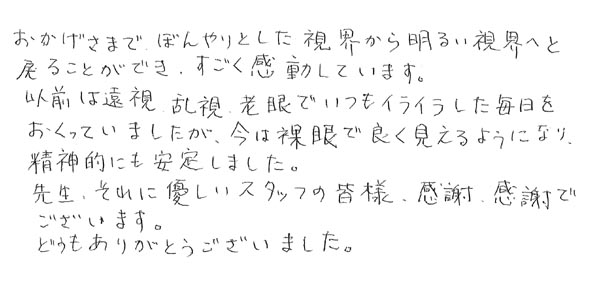 おかげさまで、ぼんやりとした視界から明るい視界へと
戻ることができ、すごく感動しています。
以前は遠視、乱視、老眼でいつもイライラした毎日を
おくっていましたが、今は裸眼で良く見えるようになり、
精神的にも安定しました。
先生、それに優しいスタッフの皆様、感謝、感謝で
ございます。
どうもありがとうございました。